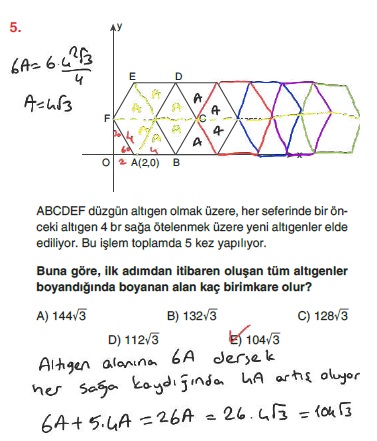 5.
y
6A = 6 . 4²√3 / 4
A = 4√3
E D
A A A A
F C A A
A A A A A
30 4
60 4
O 2 A(2,0) B x
ABCDEF düzgün altıgen olmak üzere, her seferinde bir ön-
ceki altıgen 4 br sağa ötelenmek üzere yeni altıgenler elde
ediliyor. Bu işlem toplamda 5 kez yapılıyor.
Buna göre, ilk adımdan itibaren oluşan tüm altıgenler
boyandığında boyanan alan kaç birimkare olur?
A) 144√3 B) 132√3 C) 128√3
D) 112√3 E) 104√3
Altıgen alanına 6A dersek
her sağa kaydığında 4A artış oluyor
6A + 5.4A = 26A = 26.4√3 = 104√3